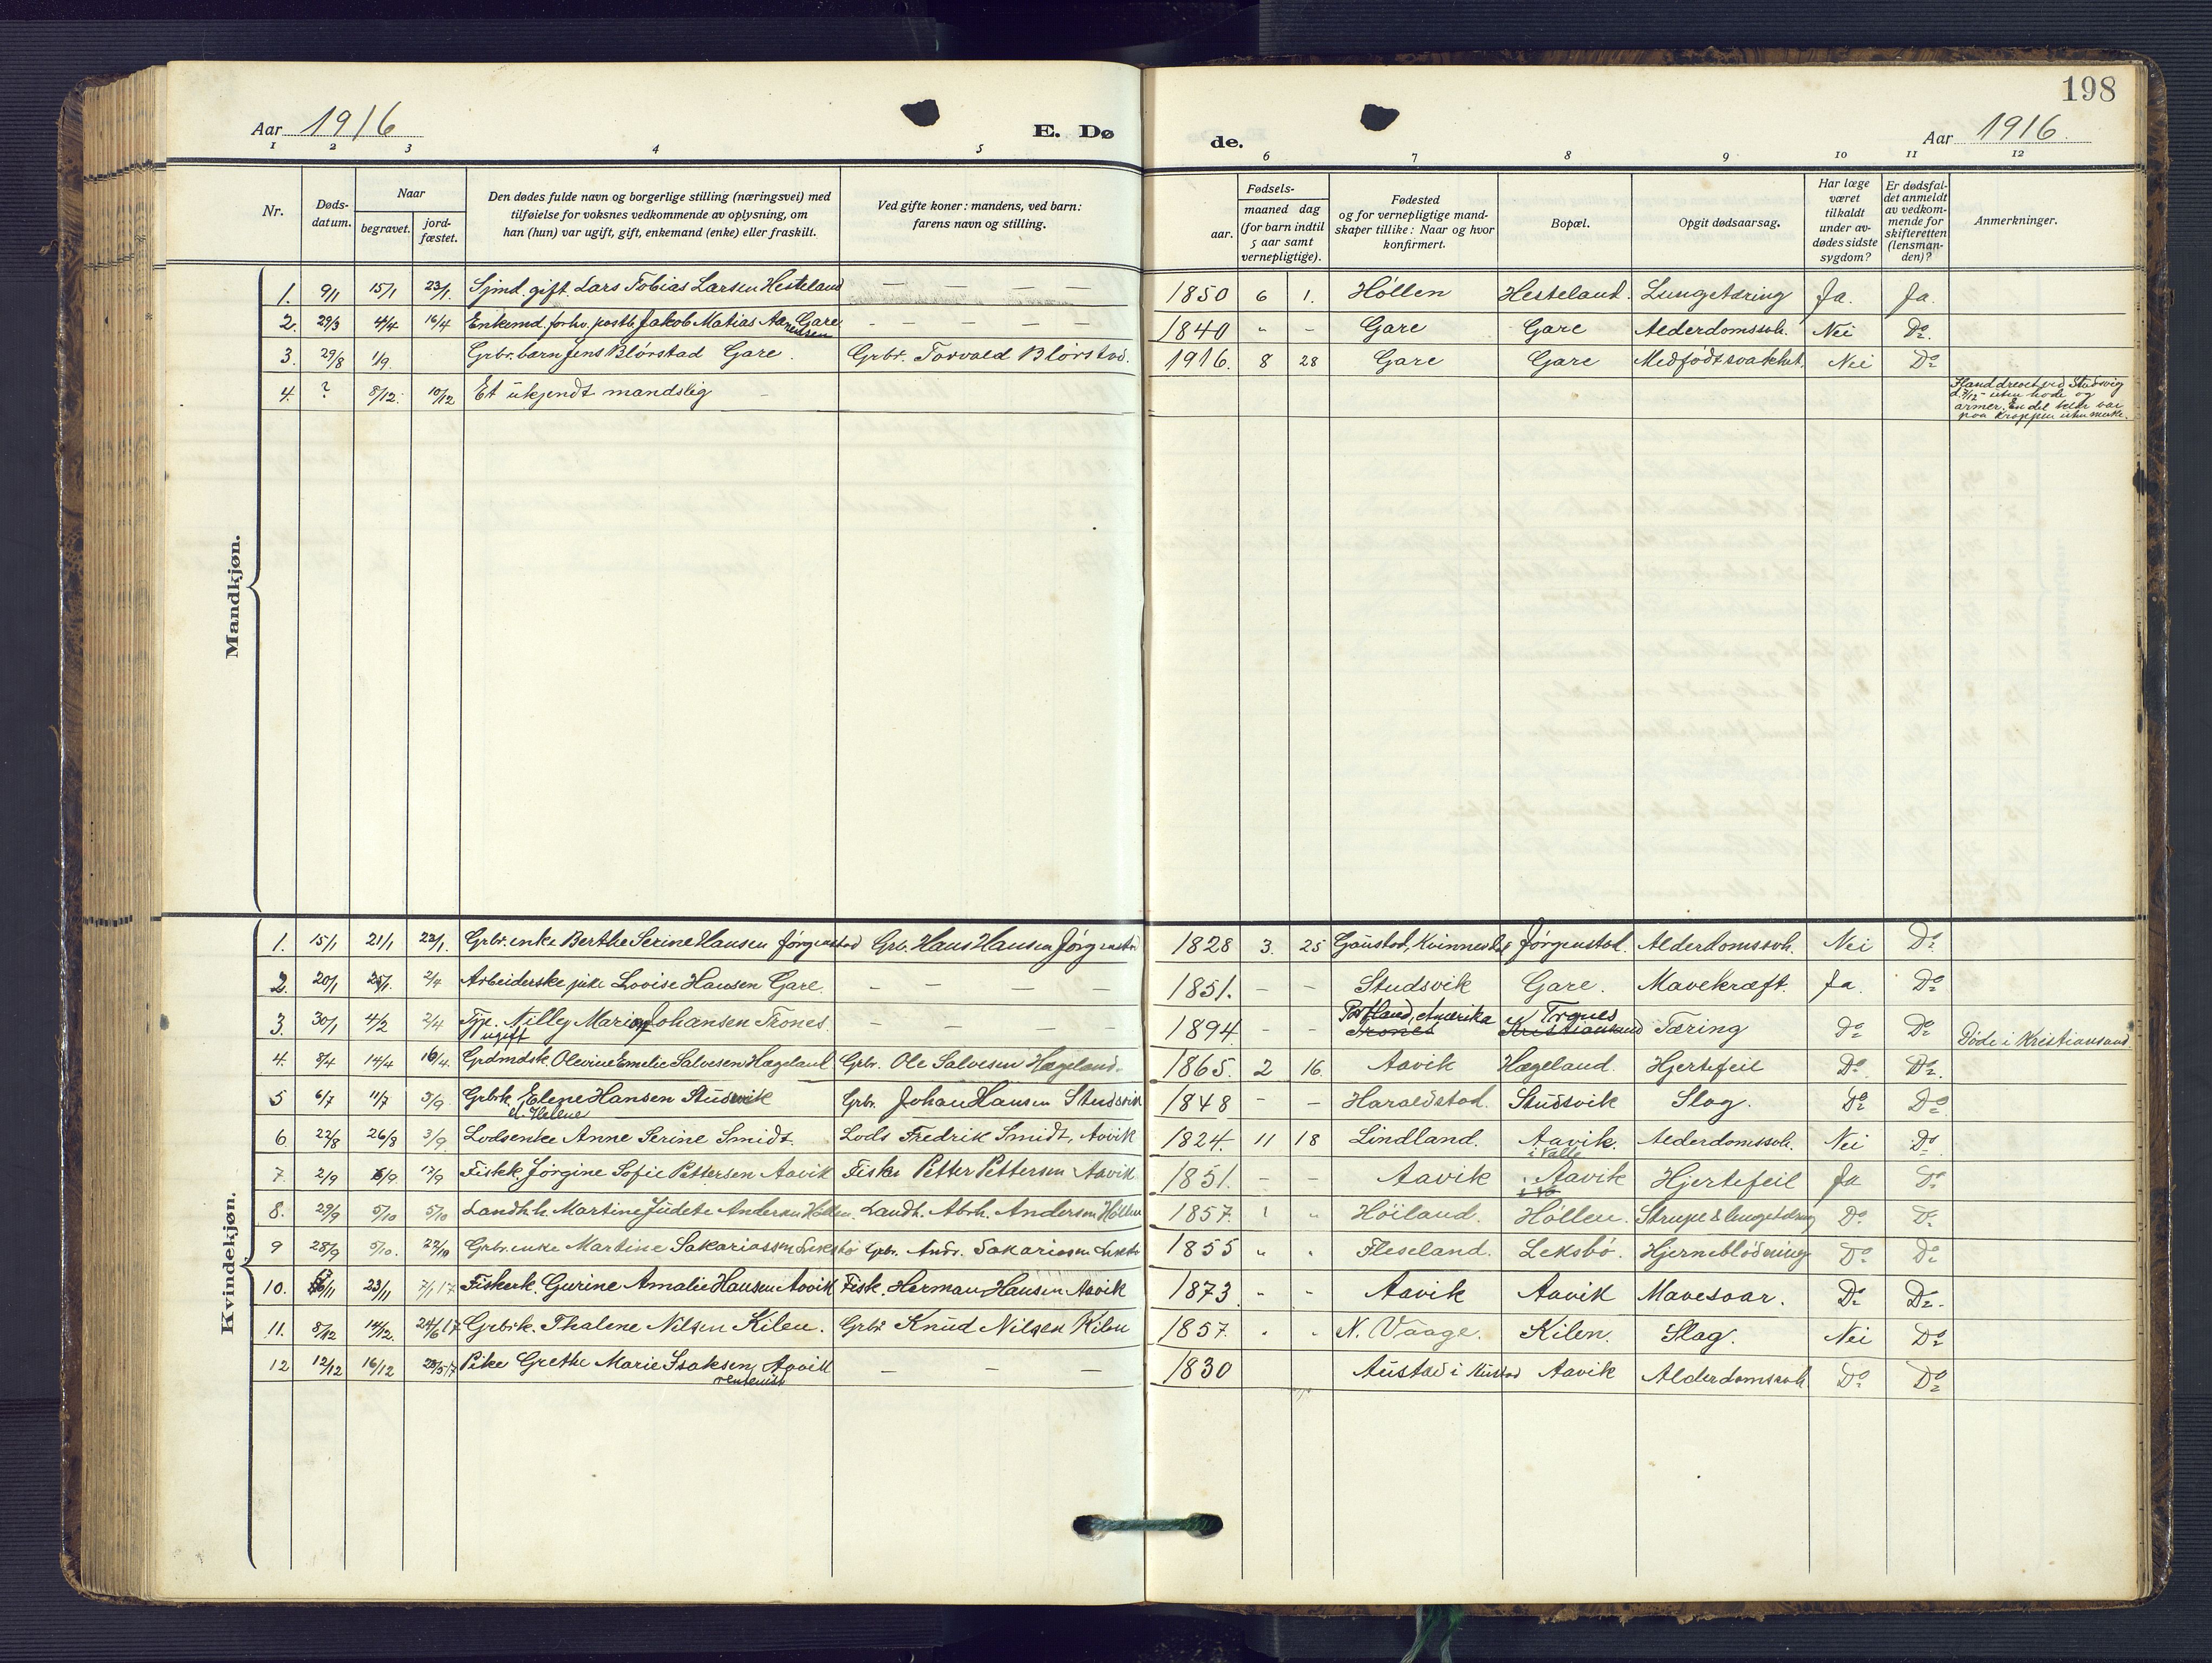 198
Aar 1916 E. Dø de. Aar 1916
1 2 3 4 5 6 7 8 9 10 11 12
Nr. Døds-datum. Naar begravet. jord-fæstet. Den dødes fulde navn og borgerlige stilling (næringsvei) med tilføielse for voksnes vedkommende av oplysning, om han (hun) var ugift, gift, enkemand (enke) eller fraskilt. Ved gifte koner: mandens, ved barn: farens navn og stilling. Fødsels- aar. maaned dag (for barn indtil 5 aar samt vernepligtige). Fødested og for vernepligtige mand-skaper tillike: Naar og hvor konfirmert. Bopæl. Opgit dødsaarsag. Har læge været tilkaldt under av-dødes sidste sygdom? Er dødsfal-det anmeldt av vedkom-mende for skifteretten (lensman-den)? Anmerkninger.
Mandkjøn.
1. 9/1 15/1 23/1. Sjmd. gift. Lars Tobias Larsen Hesteland — — — 1850 6 1. Høllen Hesteland. Lungetæring Ja. Ja.
2. 29/3 4/4 16/4 Enkemd. forhv. postb. Jakob Matias Aanensen Gare — — — — — 1840 - - Gare Gare Alderdomssvh. Nei Do.
3. 29/8 1/9. Grbr. barn Jens Blörstad Gare. Grbr. Torvald Blörstad. 1916. 8 28 Gare Gare Medfödt svakhet. Nei Do
4. ? 8/12. 10/12 Et ukjendt mandslig
Fland drevet ved Studsvig
d. 7/12 - uten hode og
armer. En del belter var
paa kroppen uten merke.
Kvindekjøn.
1. 15/1 21/1 23/1. Grbr. enke Berthe Serine Hansen Jörgenstad Grb. Hans Hansen Jörgenstad 1828 3. 25 Gaustad, Kvinnesdal Jörgenstad. Alderdomssvh. Nei Do
2. 20/1 25/1. 2/4 Arbeiderske pike Lovise Hansen Gare. — — — — 1851. - - Studsvik Gare. Mavekræft. Ja. Do
3. 30/1 4/2 2/4 Tjp. Nilly Marion Johansen Trones. — — — — 1894. - - Portland, Amerika Trones Tæring do Do Döde i Kristiansand.
ugift Trones Kristiansand
4. 8/4 14/4 16/4. Grdmdsk. Olevine Emelie Salvesen Hægeland. Grbr. Ole Salvesen Hægeland. 1865. 2 16. Aavik Hægeland. Hjertefeil Do. Do.
5 6/7 11/7 3/9. Grbrk. Elene Hansen Studsvik Grbr. Johan Hansen Studsvik 1848 - - Haraldstad. Studsvik Slag. Do Do
el. Helene
6. 22/8 26/8 3/9. Lodsenke Anne Serine Smidt. Lods Fredrik Smidt, Avik 1824. 11 18 Lindland. Aavik. Alderdomssvh. Nei Do
i Valle
7. 2/9 6/9. 17/9 Fiskk. Jörgine Sofie Pettersen Aavik Fisker Petter Pettersen Aavik 1851. - - Aavik Aavik Hjertefeil Ja Do
8. 29/9 5/10 5/10 Landhh. Martine Judete Andersen Höllen. Landh. Abrh. Andersen Höllen 1857. Höiland. Höllen. Strupe & lungetæring Do Do
9 28/9 5/10. 22/10 Grbr. enke Martine Sakariassen Leksbö Grbr. Andr. Sakariassen Leksbö 1855 Fleseland. Leksbö. Hjerneblödning Do Do
10. 23/11 7/1 17 Fiskerk. Gurine Amalie Hansen Aavik Fisk. Herman Hansen Aavik 1873. - - Aavik Aavik Mavesaar. Do Do.
11. 8/12 14/12. 24/6 17 Grbrk. Thalene Nilsen Kilen. Grbr Knud Nilsen Kilen 1857. N. Vaage. Kilen. Slag. Nei Do
12 12/12 16/12 28/5 17 Pike Grethe Marie Isaksen, Aavik — — — 1830 Austad i Austad Aavik Alderdomssvh Do Do
rentenist